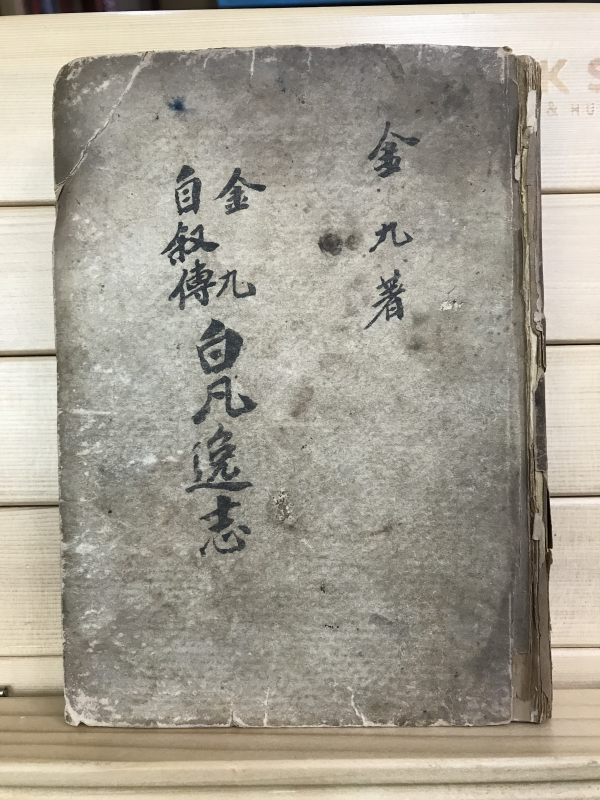 金九著
金九
自叙傳
白凡逸志
K S
& HU